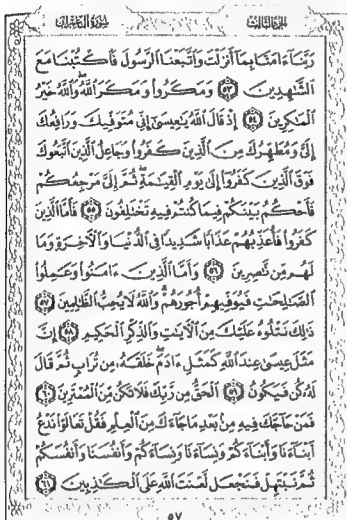 الجزء الثالث
سورة آل عمران
رَبَّنَآ ءَامَنَّا بِمَآ أَنزَلْتَ وَٱتَّبَعْنَا ٱلرَّسُولَ فَٱكْتُبْنَا مَعَ
ٱلشَّٰهِدِينَ ٥٣ وَمَكَرُوا۟ وَمَكَرَ ٱللَّهُ وَٱللَّهُ خَيْرُ
ٱلْمَٰكِرِينَ ٥٤ إِذْ قَالَ ٱللَّهُ يَٰعِيسَىٰٓ إِنِّى مُتَوَفِّيكَ وَرَافِعُكَ
إِلَىَّ وَمُطَهِّرُكَ مِنَ ٱلَّذِينَ كَفَرُوا۟ وَجَاعِلُ ٱلَّذِينَ ٱتَّبَعُوكَ
فَوْقَ ٱلَّذِينَ كَفَرُوٓا۟ إِلَىٰ يَوْمِ ٱلْقِيَٰمَةِ ثُمَّ إِلَىَّ مَرْجِعُكُمْ
فَأَحْكُمُ بَيْنَكُمْ فِيمَا كُنتُمْ فِيهِ تَخْتَلِفُونَ ٥٥ فَأَمَّا ٱلَّذِينَ
كَفَرُوا۟ فَأُعَذِّبُهُمْ عَذَابًا شَدِيدًا فِى ٱلدُّنْيَا وَٱلْءَاخِرَةِ وَمَا
لَهُم مِّن نَّٰصِرِينَ ٥٦ وَأَمَّا ٱلَّذِينَ ءَامَنُوا۟ وَعَمِلُوا۟
ٱلصَّٰلِحَٰتِ فَيُوَفِّيهِمْ أُجُورَهُمْ وَٱللَّهُ لَا يُحِبُّ ٱلظَّٰلِمِينَ ٥٧
ذَٰلِكَ نَتْلُوهُ عَلَيْكَ مِنَ ٱلْءَايَٰتِ وَٱلذِّكْرِ ٱلْحَكِيمِ ٥٨ إِنَّ
مَثَلَ عِيسَىٰ عِندَ ٱللَّهِ كَمَثَلِ ءَادَمَ خَلَقَهُۥ مِن تُرَابٍ ثُمَّ قَالَ
لَهُۥ كُن فَيَكُونُ ٥٩ ٱلْحَقُّ مِن رَّبِّكَ فَلَا تَكُن مِّنَ ٱلْمُمْتَرِينَ ٦٠
فَمَنْ حَآجَّكَ فِيهِ مِنۢ بَعْدِ مَا جَآءَكَ مِنَ ٱلْعِلْمِ فَقُلْ تَعَالَوْا۟ نَدْعُ
أَبْنَآءَنَا وَأَبْنَآءَكُمْ وَنِسَآءَنَا وَنِسَآءَكُمْ وَأَنفُسَنَا وَأَنفُسَكُمْ
ثُمَّ نَبْتَهِلْ فَنَجْعَل لَّعْنَتَ ٱللَّهِ عَلَى ٱلْكَٰذِبِينَ ٦١
٥٧